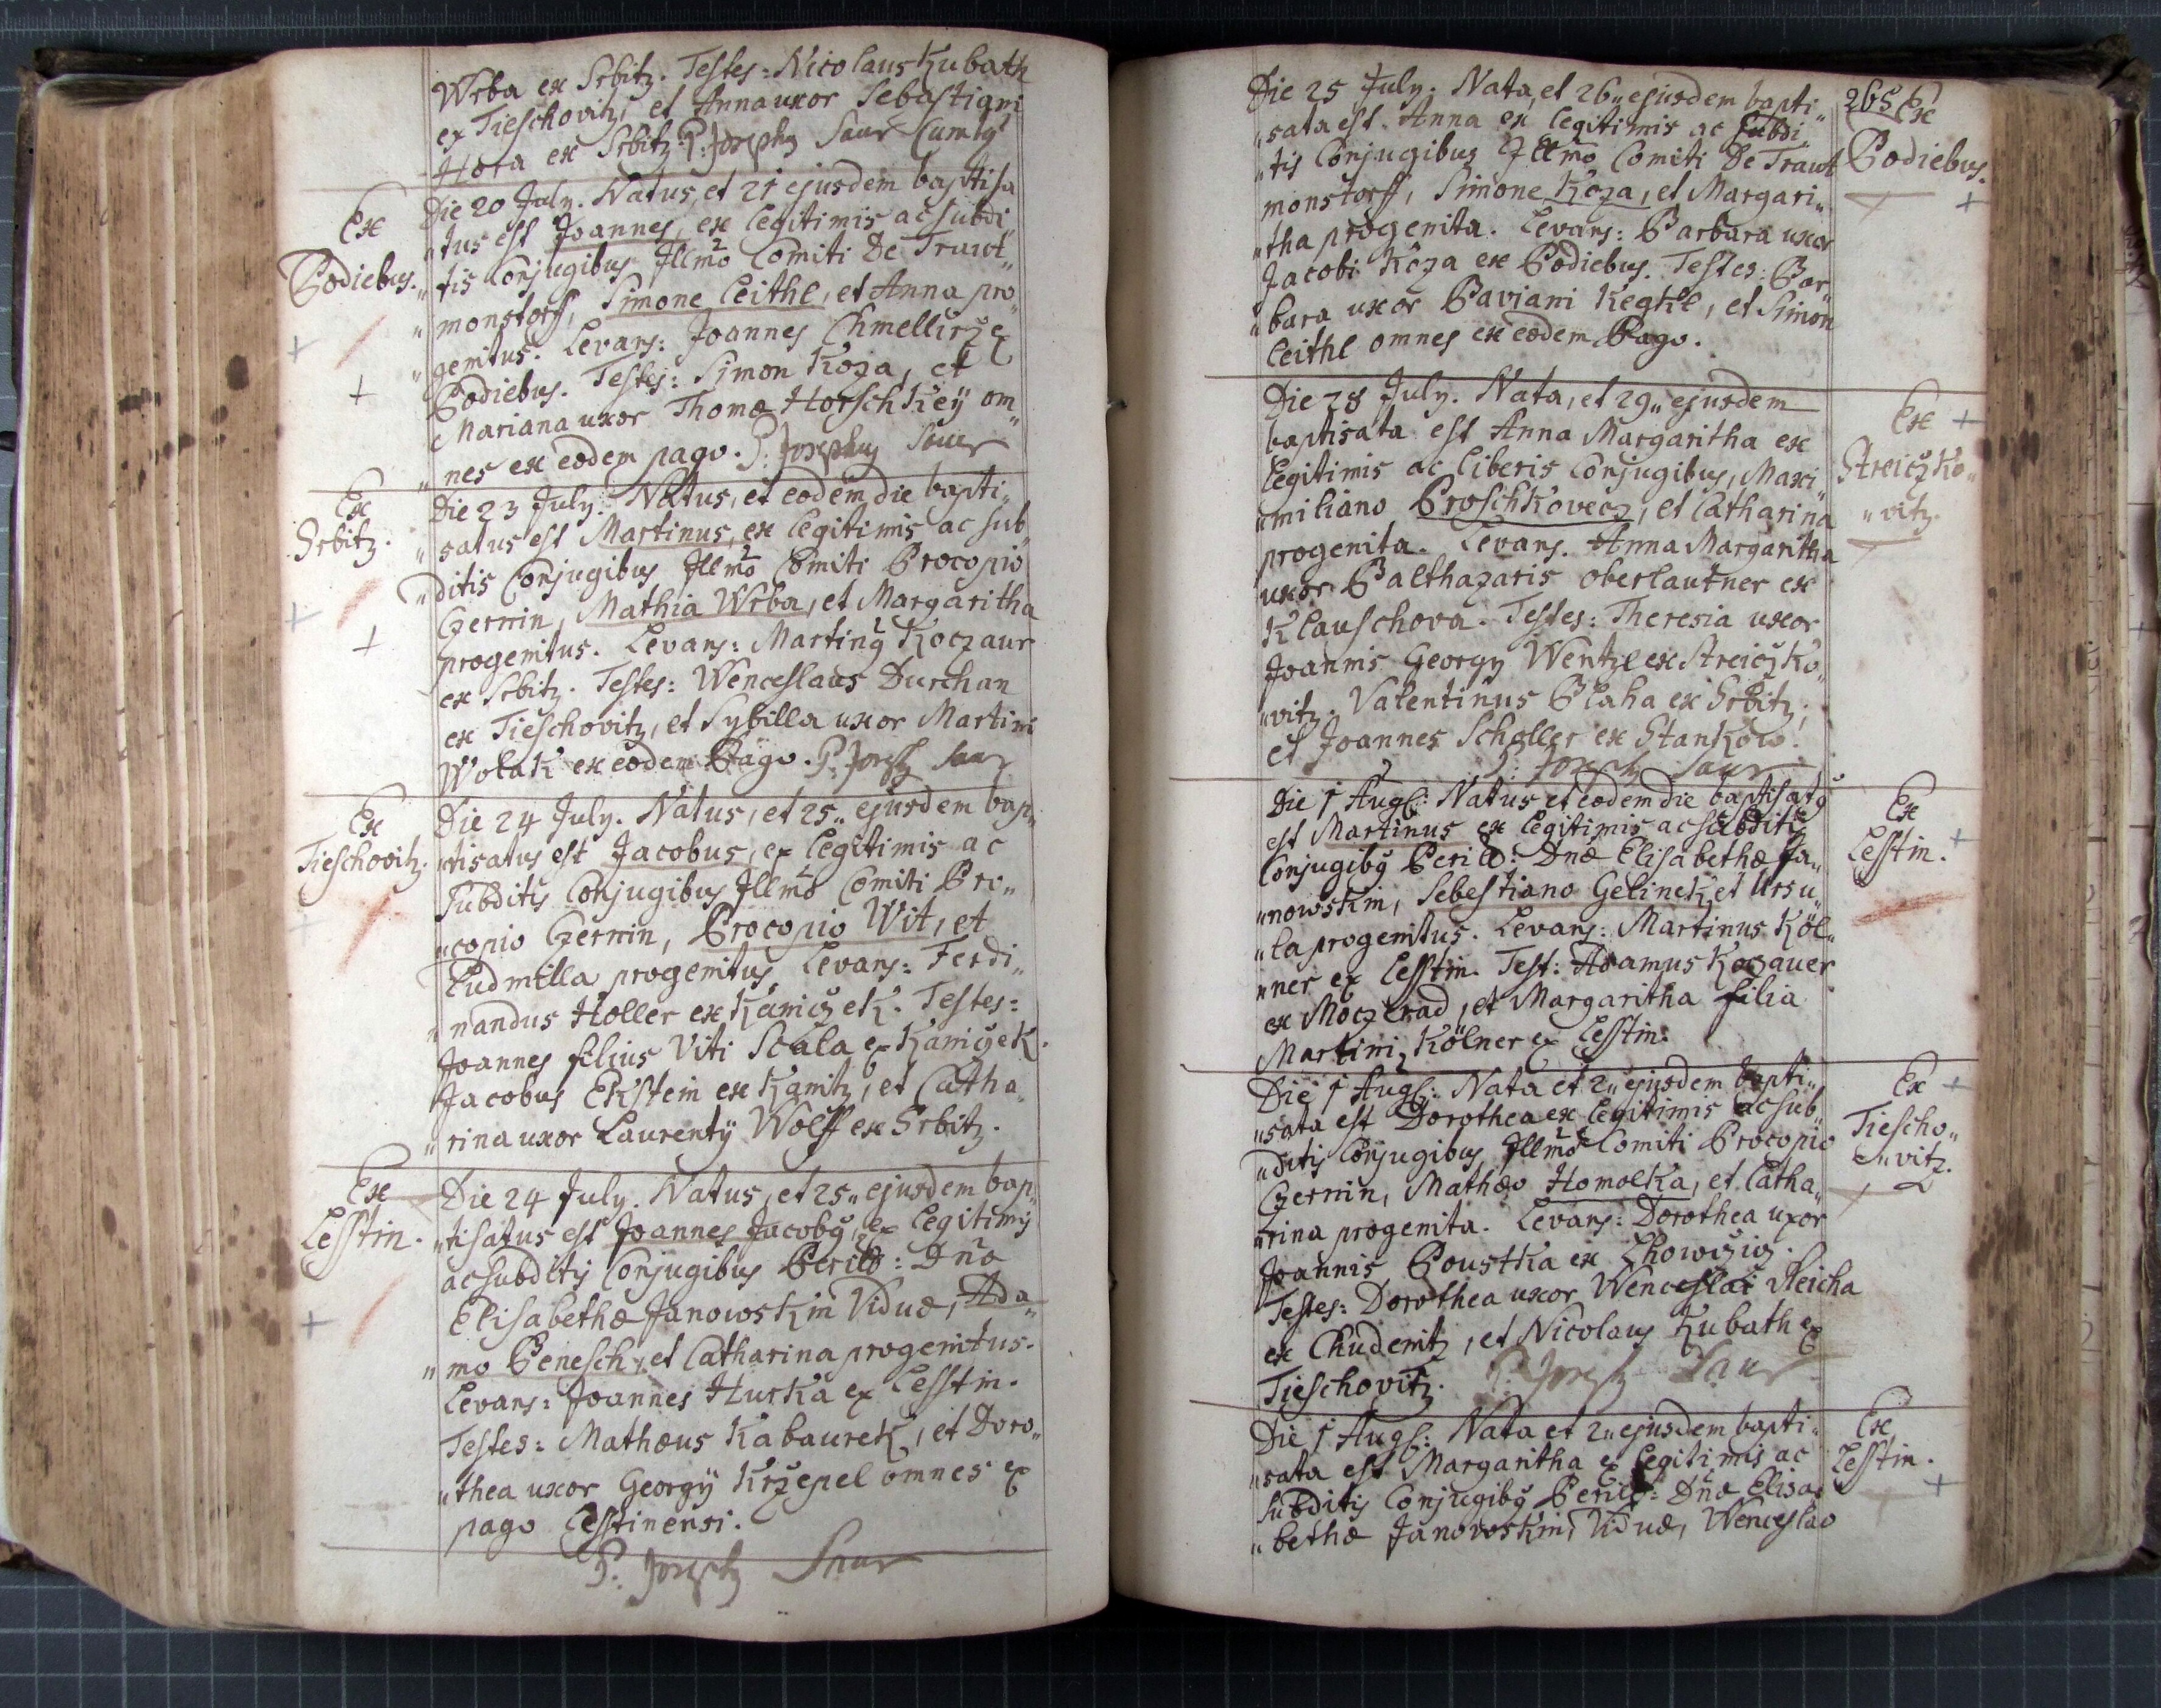 Wrba ex Srbitz. Testes: Nicolaus Kubath
ex Tieschovitz, et Anna uxor Sebastiani
Hora ex Srbitz. P: Josephg Saur
Ex
Podiebus.
Die 20 July. Natus, et 21 ejusdem baptisa
"tus est Joannes, ex legitimis ac subdi"
"tis Conjugibus Illmo Comiti De Traut"
"monstorff, Simone Leithl, et Anna pro"
"genitus. Levans: Joannes Chmellirz ex
Podiebus. Testes: Simon Koza, et
Mariana uxor Thomæ Horschkeÿ om"
"nes ex eodem pago. P: Josephus Saur
Ex
Srbitz.
Die 23 July. Natus, et eodem die bapti"
"satus est Martinus, ex legitimis ac sub"
"ditis Conjugibus Illmo Comiti Procopio
Czernin, Mathia Wrba, et Margaritha
progenitus. Levans: Marting Koczaur
ex Srbitz. Testes: Wenceslaus Durchan
ex Tieschovitz, et Sybilla uxor Martini
Wolak ex eodem Pago. P: Josephg Saur
Ex
Tieschovitz.
Die 24 July. Natus, et 25" ejusdem bap"
"tisatus est Jacobus, ex legitimis ac
Subditis Conjugibus Illmo Comiti Pro"
"copio Czernin, Procopio Wit, et
Ludmilla progenitus Levans: Ferdi"
"nandus Holler ex Kaniczek. Testes:
Joannes filius Viti Scala ex Kaniczek.
Jacobus Ekstein ex Kanitz, et Catha"
"rina uxor Laurentÿ Wolff ex Srbitz.
Ex
Lesstin.
Die 24 July. Natus, et 25" ejusdem bap"
"tisatus est Joannes Jacobg, ex legitimis
ac subditis Conjugibus Perill: Dnæ
Elisabethæ Janowskin Viduæ, Ada"
"mo Penesch, et Catharina progenitus.
Levans: Joannes Hurka ex Lesstin.
Testes: Mathæus Kabaurek, et Doro"
"thea uxor Georgÿ Krzepel omnes ex
pago Lesstinensi.
P: Josephg Saur
265
Ex
Podiebus.
Die 25 July. Nata, et 26" ejusdem bapti"
"sata est Anna ex legitimis ac subdi"
"tis Conjugibus Illmo Comiti De Traut
monstorff, Simone Koza, et Margari"
"tha progenita. Levans: Barbara uxor
Jacobi Koza ex Podiebus. Testes: Bar"
"bara uxor Paviani Kegkl, et Simon
Leithl omnes ex eodem Pago.
Ex
Streiczko"
"vitz.
Die 28 July. Nata, et 29" ejusdem
baptisata est Anna Margaritha ex
legitimis ac liberis Conjugibus, Maxi"
"miliano Proschkovecz, et Catharina
progenita. Levans. Anna Margaritha
uxor Balthazaris Oberlautner ex
Klauschova. Testes: Theresia uxor
Joannis Georgy Wentzl ex Streiczko"
"vitz. Valentinus Blaha ex Srbitz;
et Joannes Scholler ex Stankow.
P: Josephg Saur
Ex
Lesstin.
Die 1 Augs: Natus et eodem die baptisatg
est Martinus ex legitimis ac subditis
Conjugibg Perill: Dnæ Elisabethæ Ja"
"nowskin, Sebestiano Gelinek et Ursu"
"la progenitus. Levans: Martinus Köl"
"ner ex Lesstin. Test: Adamus Kozauer
ex Moczerad, et Margaritha filia
Martini Kölner ex Lesstin.
Ex
Tiescho"
"vitz.
Die 1 Augs: Nata et 2" ejusdem bapti"
"sata est Dorothea ex legitimis ac sub"
"ditis Conjugibus Illmo Comiti Procopio
Czernin, Mathæo Homolka, et Catha"
"rina progenita. Levans: Dorothea uxor
Joannis Poustka ex Chowczicz.
Testes: Dorothea uxor Wenceslai Reicha
ex Chudenitz, et Nicolaus Kubath ex
Tieschovitz. P: Josephg Saur
Ex
Lesstin.
Die 1 Augs: Nata et 2" ejusdem bapti"
"sata est Margaritha ex legitimis ac
subditis Conjugibg Perill: Dnæ Elisa"
"bethæ Janowskin, Viduæ, Wenceslao